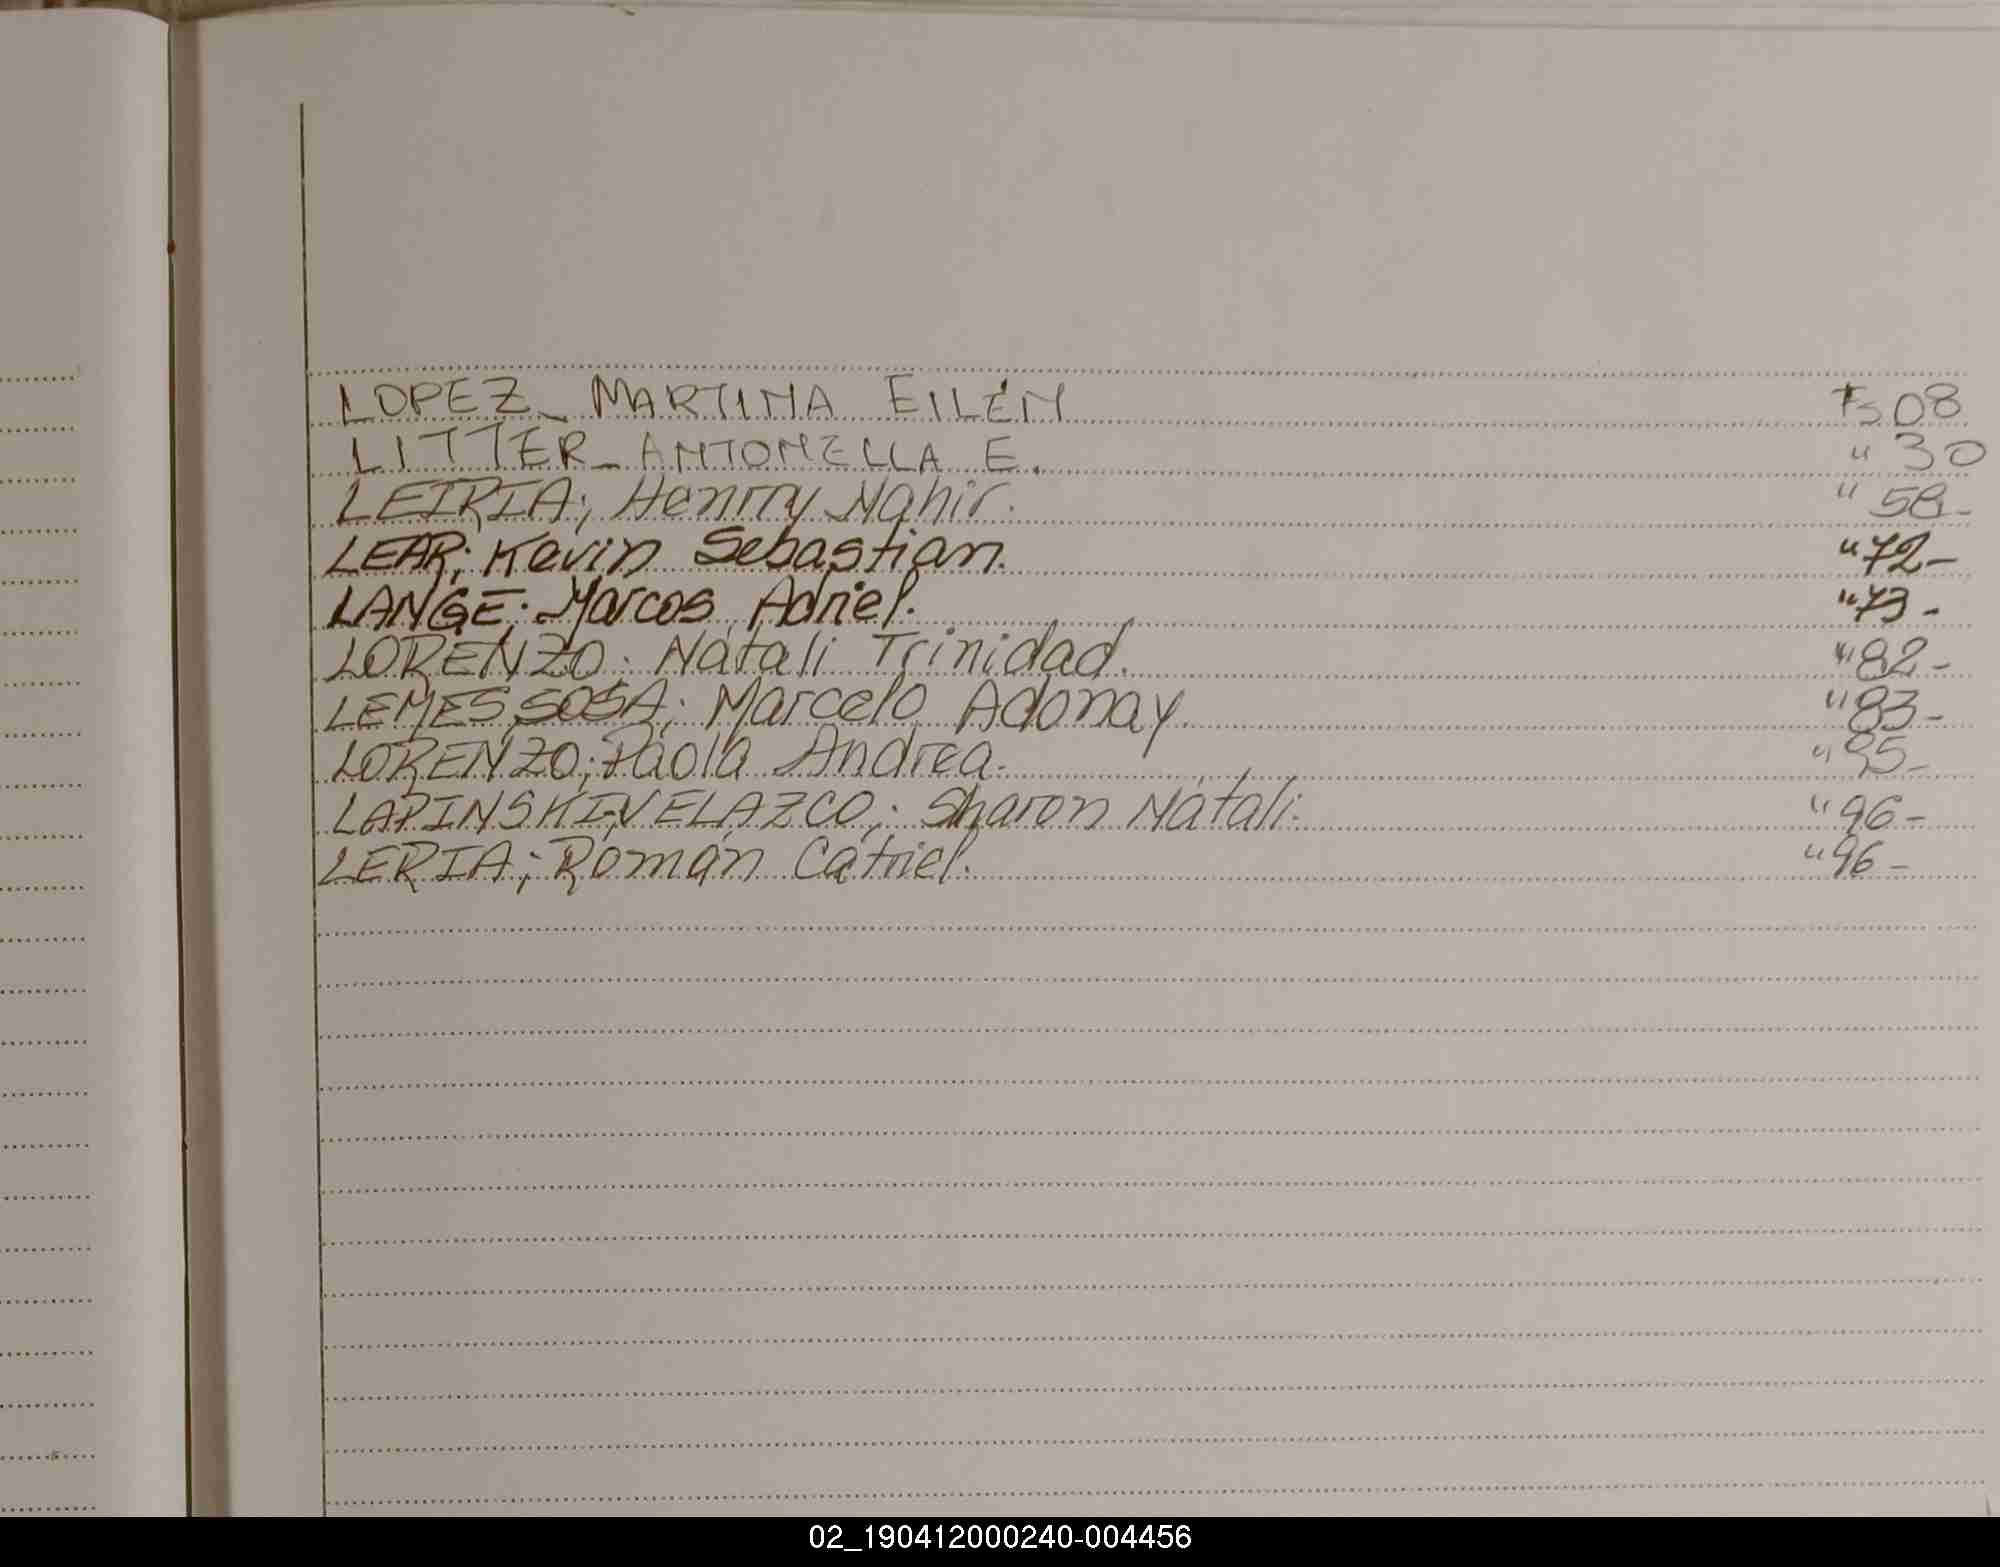 LOPEZ_ MARTINA EILÉN Fs 08
LITTER_ ANTONELLA E. " 30
LEIRIA; Henrry Nahir. " 58-
LEAR; Kevin Sebastian. " 72-
LANGE; Marcos Adriel. " 73-
LORENZO; Natali Trinidad. " 82-
LEMES SOSA; Marcelo Adonay. " 83-
LORENZO; Paola Andrea. " 95-
LAPINSKI-VELAZCO; Sharon Natali. " 96-
LERIA; Román Catriel. " 96-
02_190412000240-004456